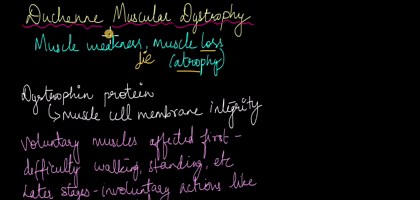 Duchenne Muscular Dystrophy
Muscle weakness, muscle loss
die (atrophy)
Dystrophin protein
↳ muscle cell membrane integrity
Voluntary muscles affected first -
difficulty walking, standing, etc
Later stages - involuntary actions like